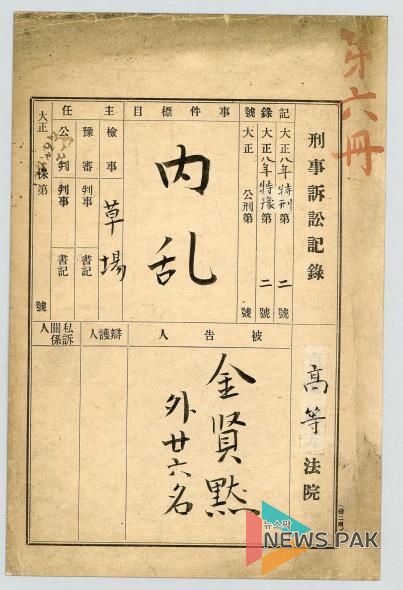 第六冊
刑事訴訟記錄
高等法院
記錄號
大正八年特刑第二號
大正八年特豫第二號
大正 公刑第 號
事件標目
內乱
主任
檢事 草場
豫審判事 書記
公判判事 書記
大正
保第 號
被告人
金賢黙
外廿六名
辯護人
私訴關係人
뉴스팍
NEWS PAK